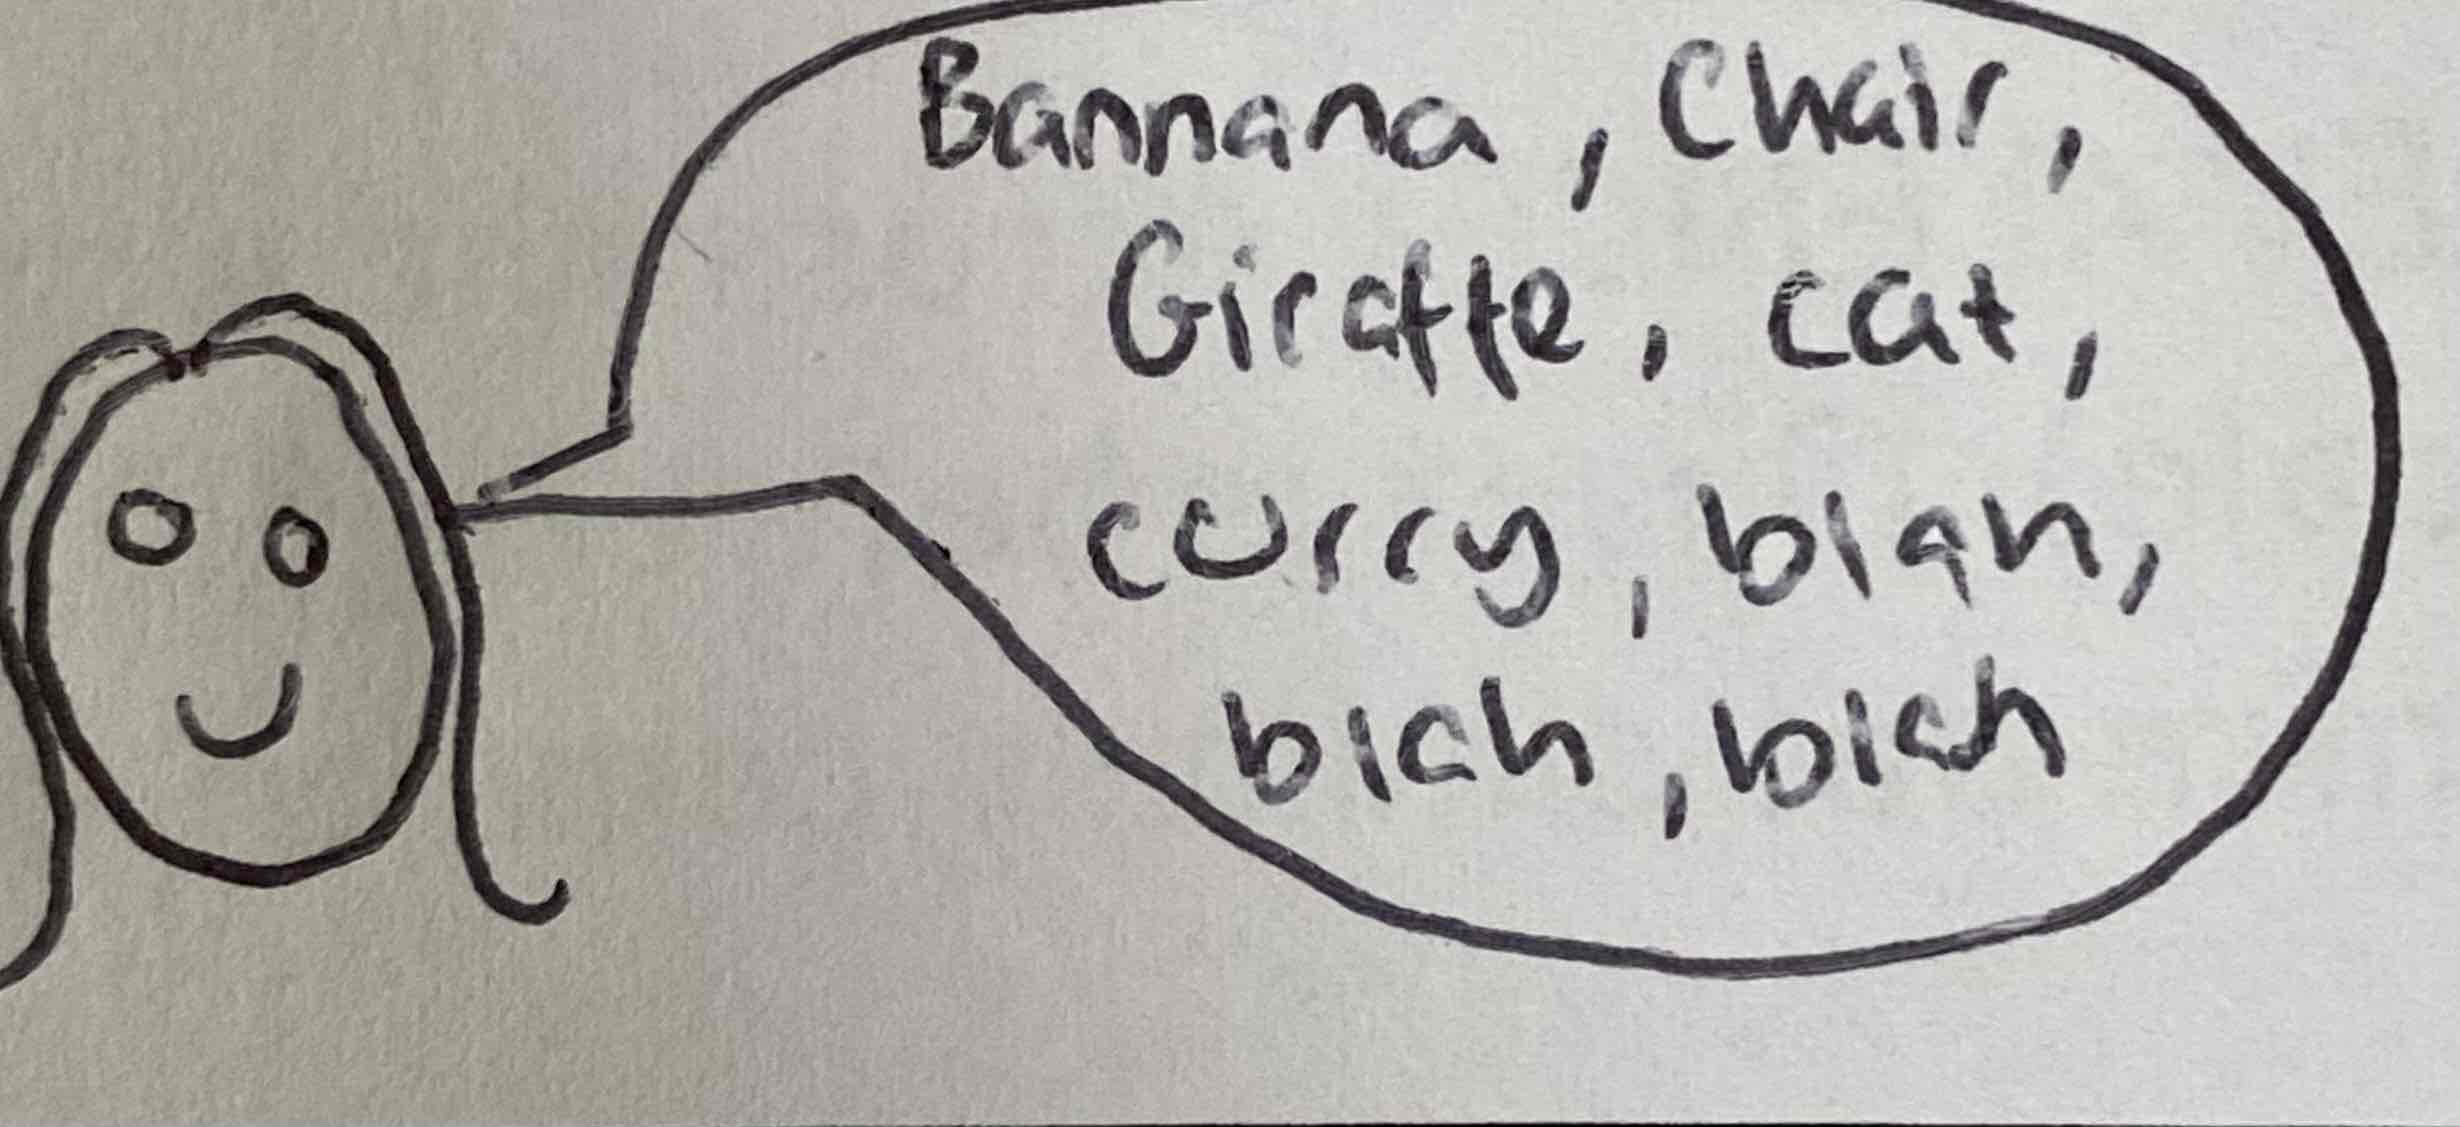 Bannana, Chair,
Giraffe, cat,
curry, blah,
blah, blah